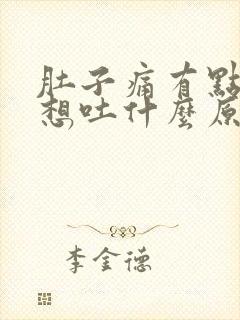 肚子痛有點
想吐什麼原
李金德